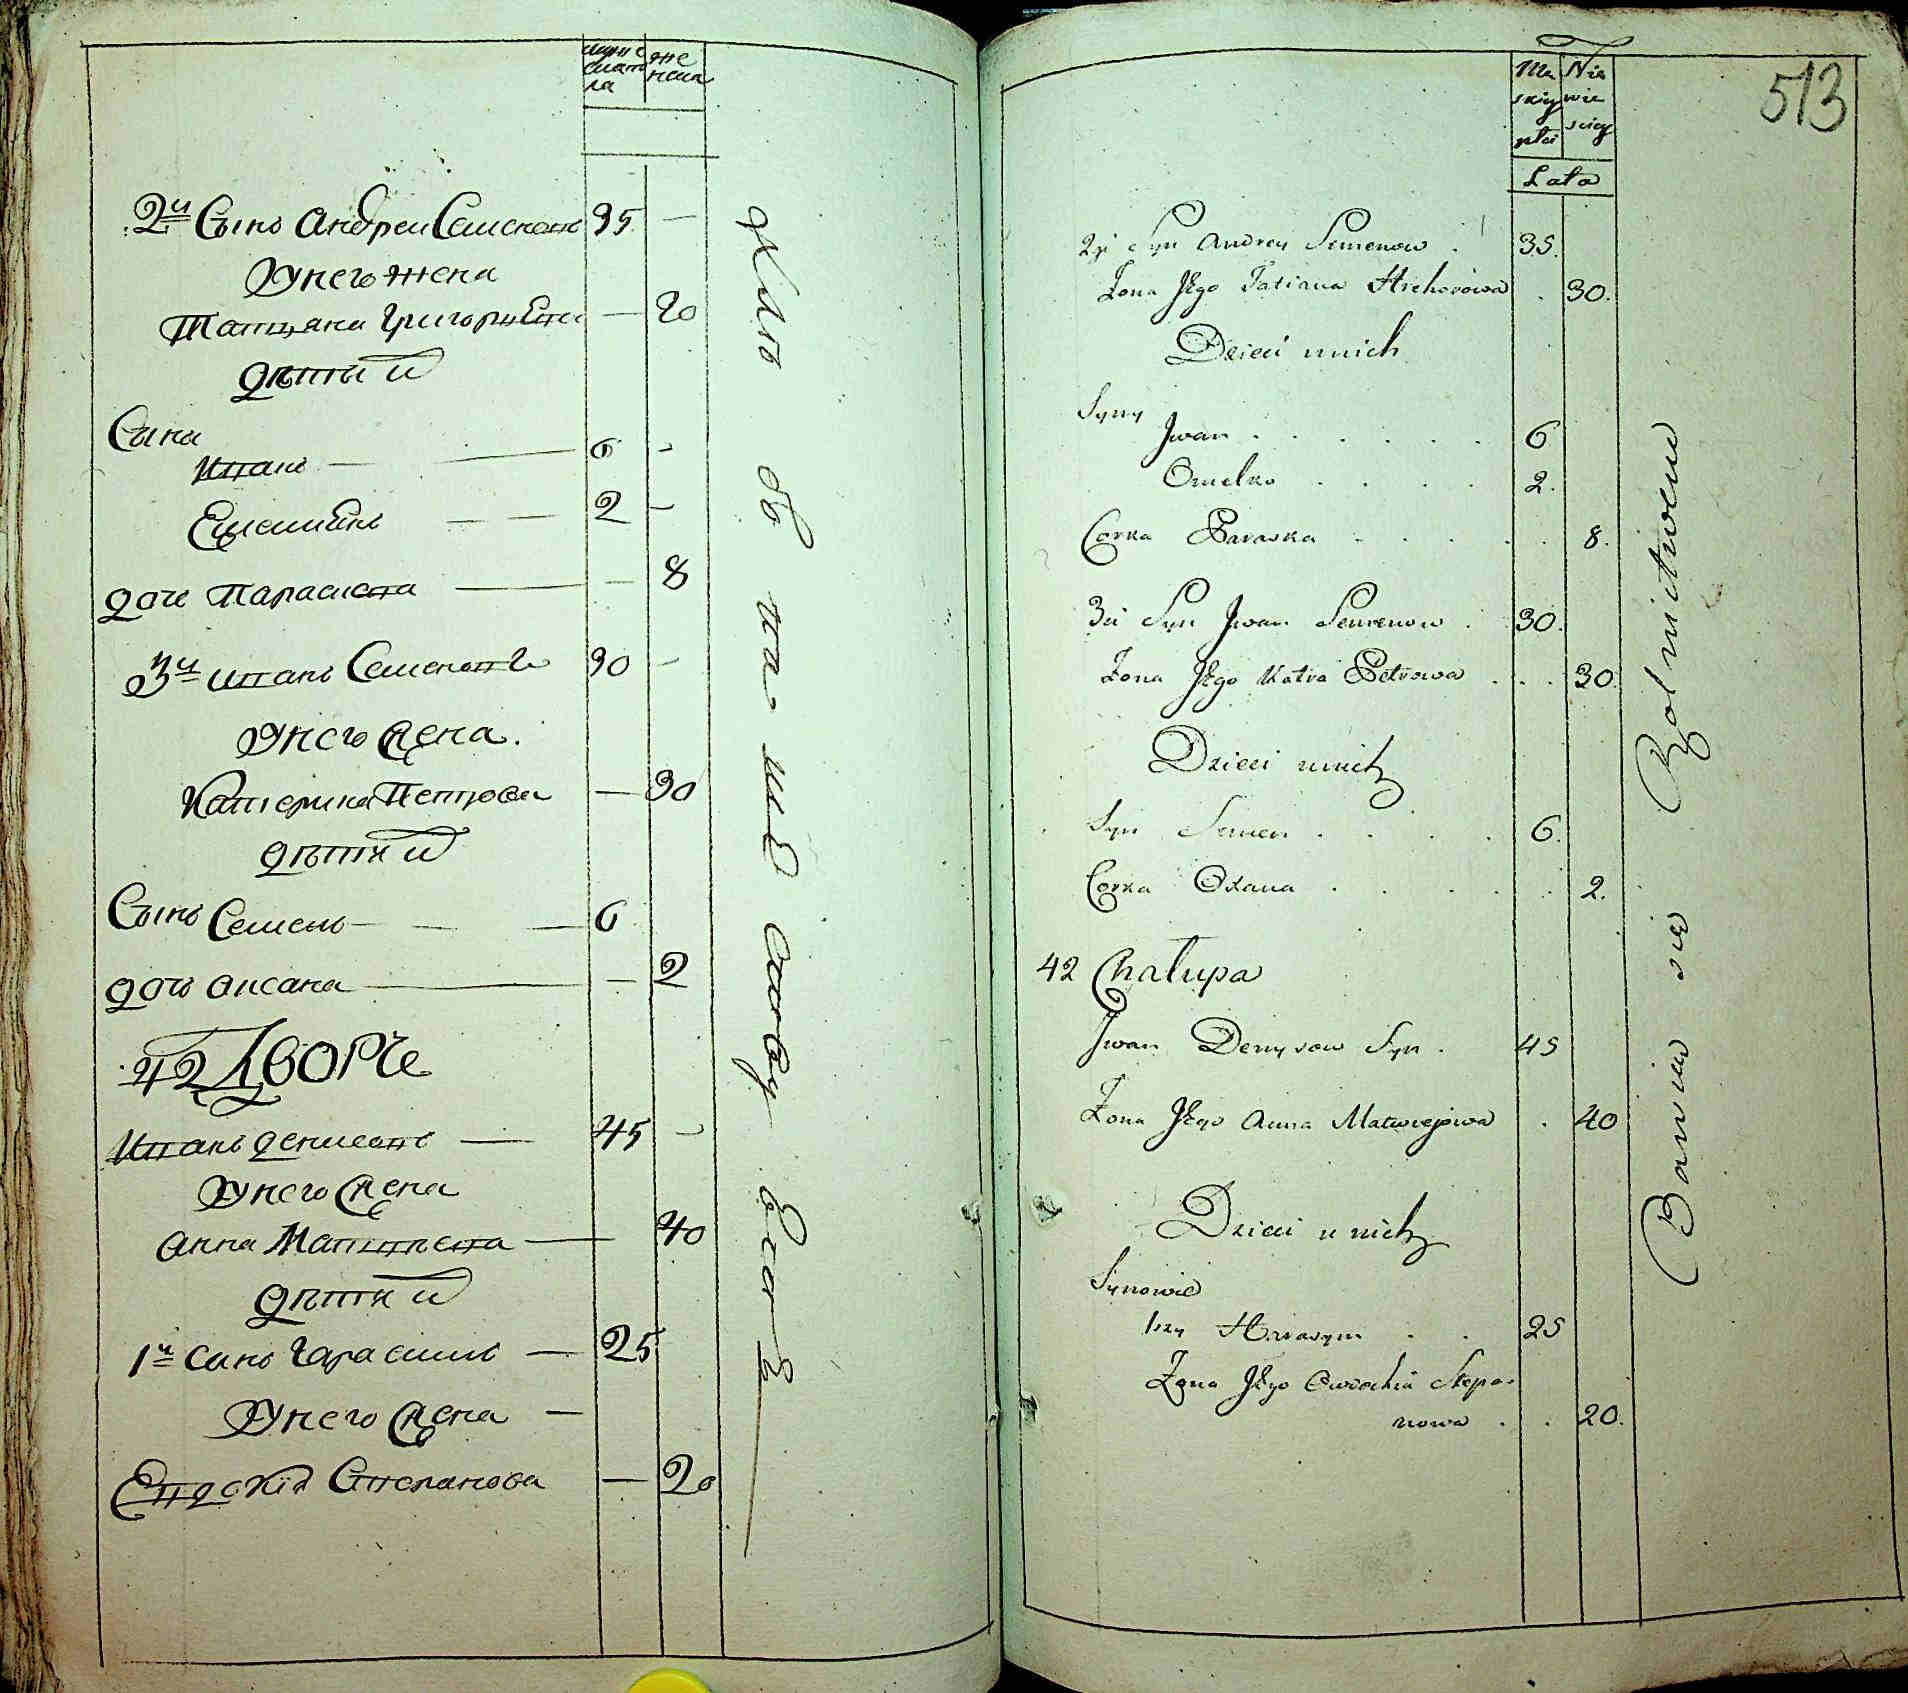 муже
ска
же
нска
2й Сынъ Андреи Семеновъ 35 —
Унего жена
Татияна Григориева — 20
дѣти и
Сына
Иванъ — — 6 -
Емелиянъ — — 2 -
дочь Параскева — — 8
3й Иванъ Семеновъ 30 —
Унего жена.
Катерина Петрова — 30
дѣти и
Сынъ Семенъ — — — 6
дочь Оксана — — 2
42 Дворъ
Иванъ Денисовъ — 45 -
Унего жена
Анна Матвѣева — 40
дѣти и
1й Сынъ Гарасимъ — 25
Унего жена —
Евдокия Степанова — 20
513
Lata
2gi Syn Andrey Semenow . 35.
Żona Jego Tatiana Hrehorowa . 30.
Dzieci unich
Syny
Jwan . . . . . . 6
Omelko . . . . 2.
Corka Paraska . . . . . 8.
3ci Syn Jwan Semenow . 30.
Żona Jego Katra Petrowa . . . 30.
Dzieci unich
Syn Semen . . . . 6.
Corka Oxana . . . . . 2.
42 Chałupa
Jwan Denysow Syn . 45
Żona Jego Anna Matwiejowa . 40
Dzieci u nich
Synowie
1szy Harasym . . 25
Żona Jego Owdochia Stepa=
nowa . . 20.
Bawiw się Rolnictwem